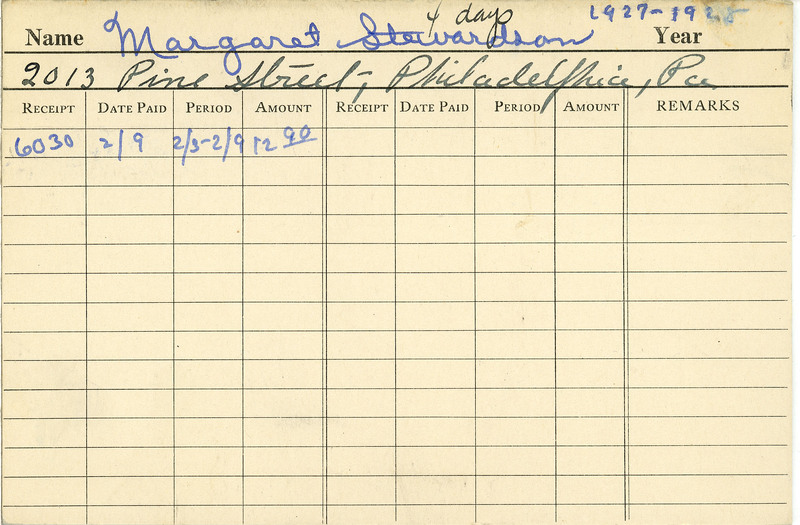 4 days 1927-1928
Name Margaret Stewardson Year
2013 Pine Street, Philadelphia, Pa
RECEIPT DATE PAID PERIOD AMOUNT RECEIPT DATE PAID PERIOD AMOUNT REMARKS
6030 2/9 2/5-2/9 12 90